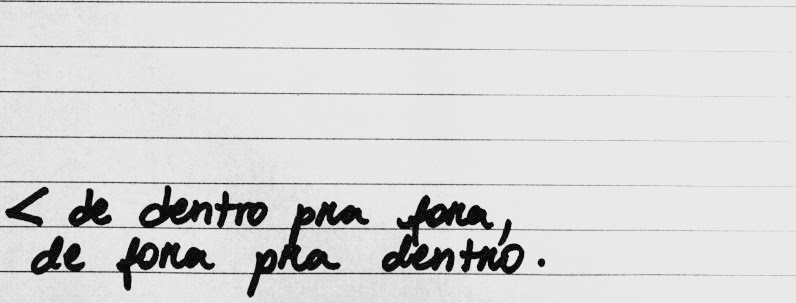 < de dentro pra fora,
de fora pra dentro.